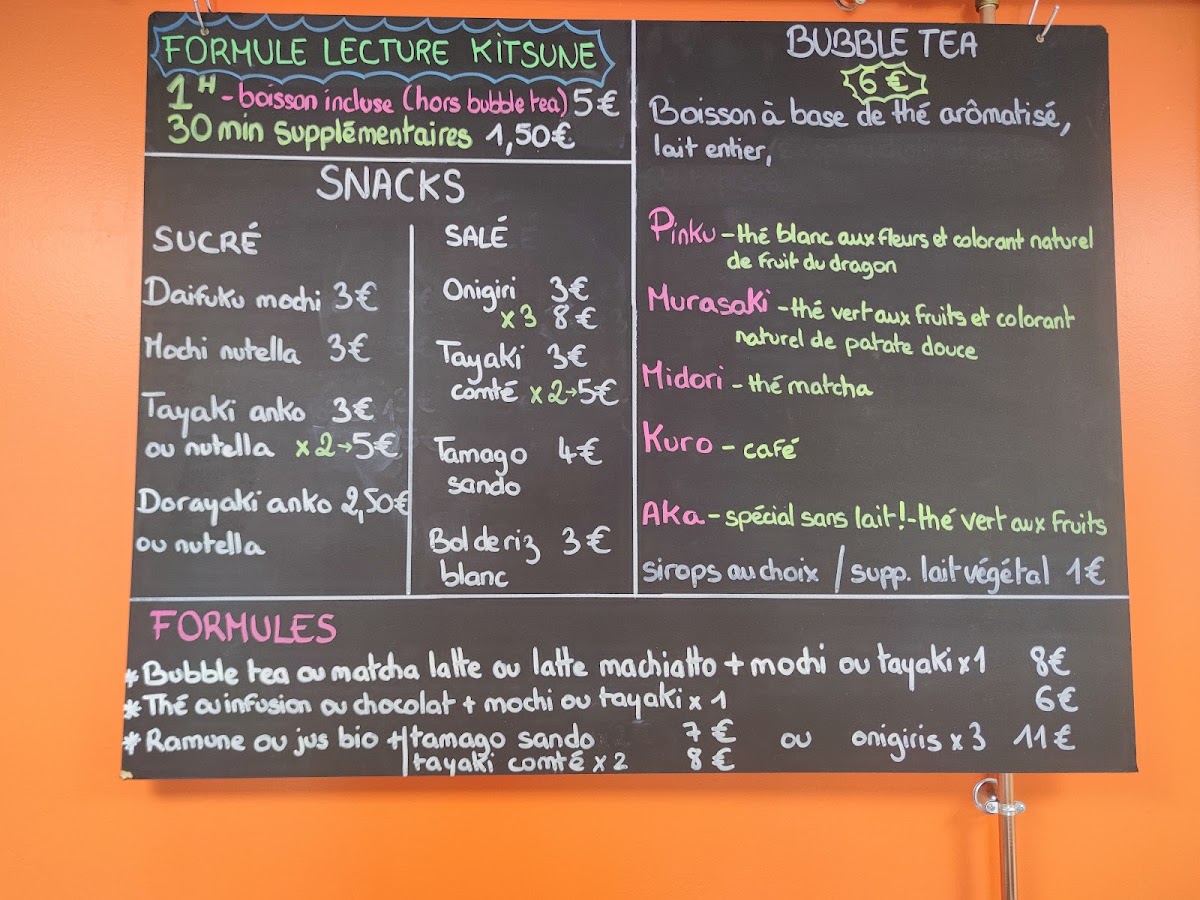 FORMULE LECTURE KITSUNE
1H - boisson incluse (hors bubble tea) 5€
30 min supplémentaires 1,50€
SNACKS
SUCRÉ
Daifuku mochi 3€
Mochi nutella 3€
Tayaki anko 3€
ou nutella x2→5€
Dorayaki anko 2,50€
ou nutella
SALÉ
Onigiri 3€
x3 8€
Tayaki 3€
comté x2→5€
Tamago 4€
sando
Bol de riz 3€
blanc
BUBBLE TEA
6€
Boisson à base de thé arômatisé,
lait entier,
Pinku - thé blanc aux fleurs et colorant naturel
de fruit du dragon
Murasaki - thé vert aux fruits et colorant
naturel de patate douce
Midori - thé matcha
Kuro - café
Aka - spécial sans lait! - thé vert aux fruits
sirops au choix / supp. lait végétal 1€
FORMULES
* Bubble tea ou matcha latte ou latte machiatto + mochi ou tayaki x1 8€
* Thé ou infusion ou chocolat + mochi ou tayaki x 1 6€
* Ramune ou jus bio + tamago sando 7€ ou onigiris x3 11€
tayaki comté x2 8€